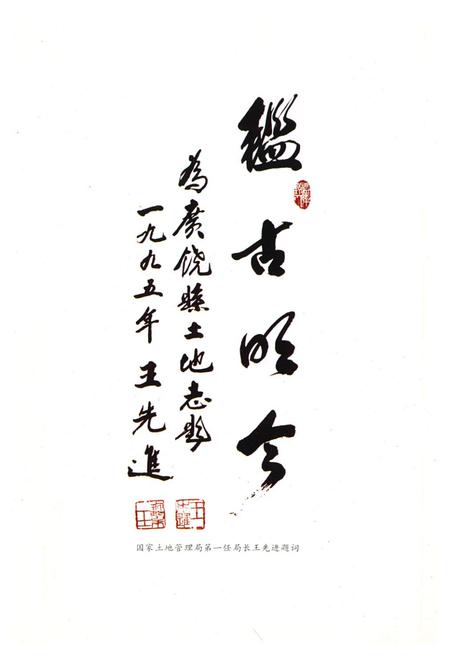 鑑古明今
为廣饶縣土地志题
一九九五年 王先進
国家土地管理局第一任局长王先进题词